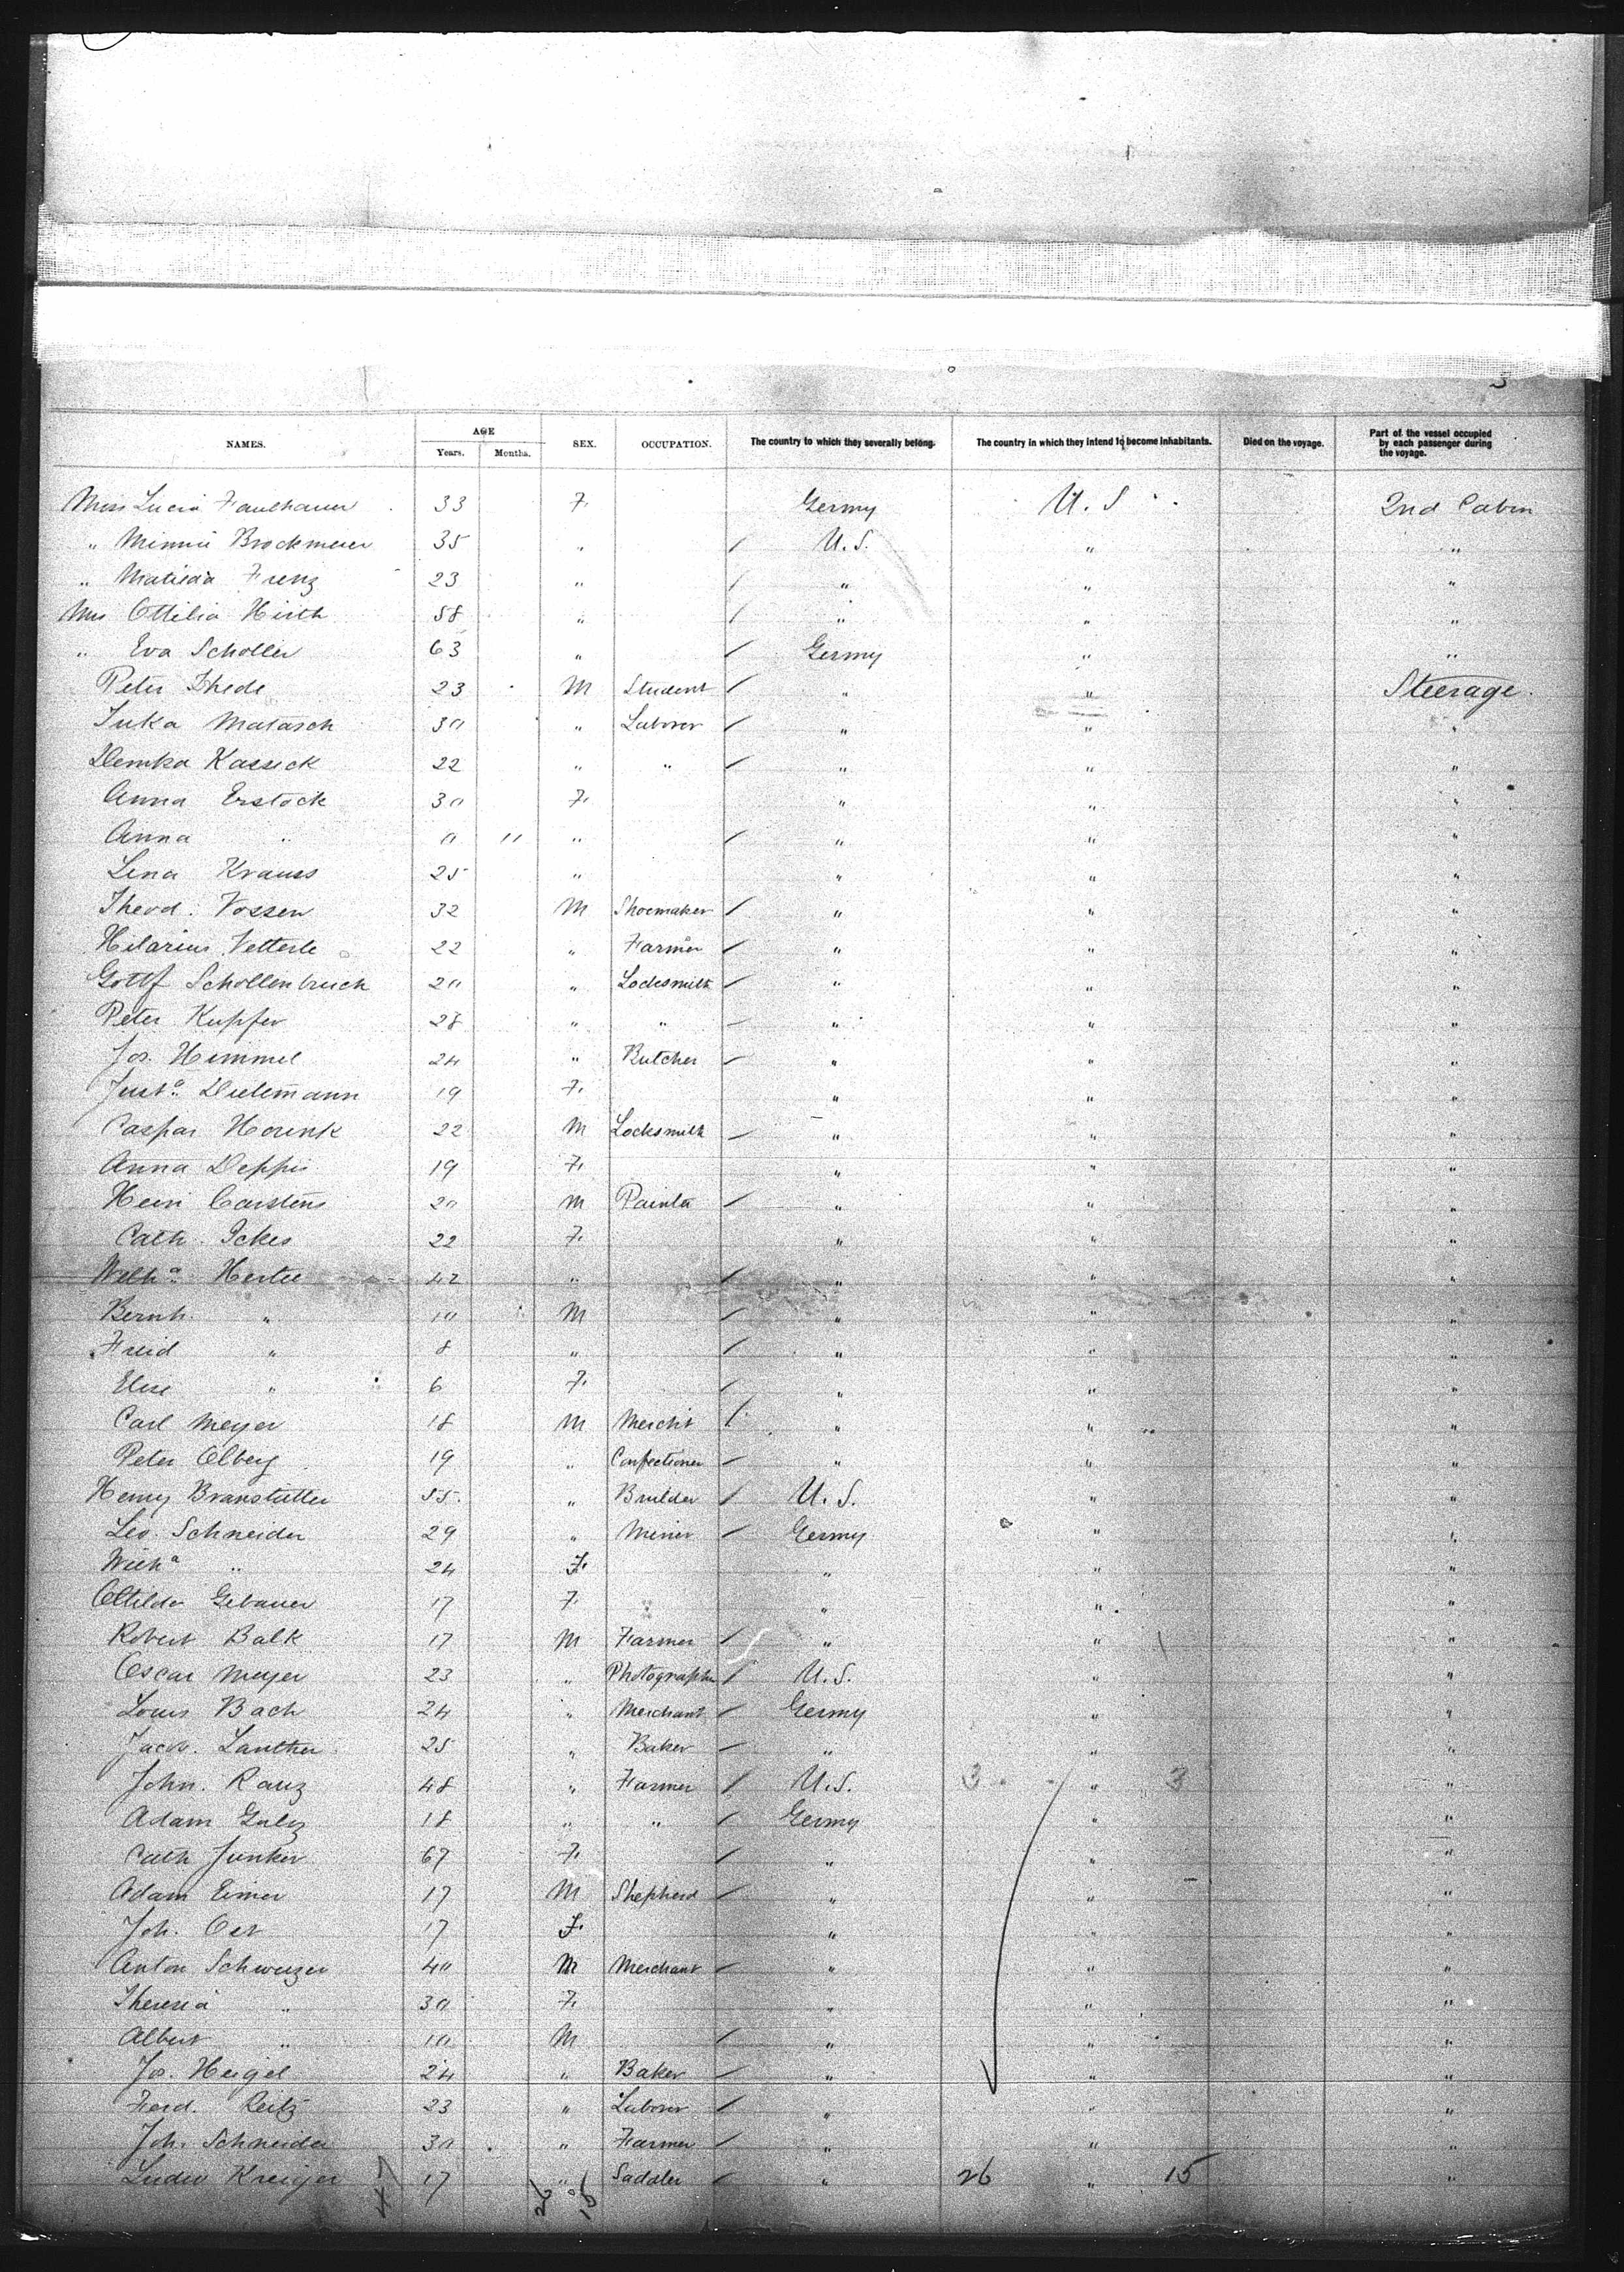 3
NAMES. AGE Years. Months. SEX. OCCUPATION. The country to which they severally belong. The country in which they intend to become inhabitants. Died on the voyage. Part of the vessel occupied by each passenger during the voyage.
Miss Lucia Faulhauer 33 F. Germy U.S 2nd Cabin
" Minnie Brockmeier 35 " / U.S. " "
" Matilda Frenz 23 " / " " "
Mrs Ottilia Hirth 58 " / " " "
" Eva Scholler 63 " / Germy " "
Peter Thede 23 M Student / " " Steerage.
Juka Matasch 30 " Laborer / " " "
Demka Kassick 22 " " / " " "
Anna Erstock 30 F. " " "
Anna " 0 11 " / " " "
Lena Krauss 25 " " " "
Theod. Vossen 32 M Shoemaker / " " "
Hilarius Vetterle 22 " Farmer / " " "
Gottf Schollenbruch 20 " Locksmith / " " "
Peter Kupfer 28 " " / " " "
Jos. Himmel 24 " Butcher / " " "
Justa Dielemann 19 F. " " "
Caspar Horink 22 M Locksmith / " " "
Anna Deppis 19 F. " " "
Heinr Carstens 20 M Painter / " " "
Cath. Ickes 22 F. " " "
Wilha Hertel 42 " / " " "
Bernh. " 10 M / " " "
Fried " 8 " / " " "
Elise " 6 F. / " " "
Carl Meyer 18 M Mercht / " " "
Peter Olberg 19 " Confectioner / " " "
Henry Branstatter 55 " Builder / U.S. " "
Leo. Schneider 29 " Miner / Germy " "
Wilha " 24 F. " " "
Gebauer 17 F. " " "
Robert Balk 17 M Farmer / " " "
Oscar Meyer 23 " Photographer / U.S. " "
Louis Bach 24 " Merchant / Germy " "
Jacob. Lanther 25 " Baker / " " "
John. Ranz 48 " Farmer / U.S. 3 " 3 "
Adam Gulz 18 " " / Germy " "
Cath Junker 67 F. / " " "
Adam Eimer 17 M Shepherd / " " "
Joh. Oer 17 F. " " "
Anton Schweizer 40 M Merchant / " " "
Theresia " 30 F. " " "
Albert " 10 M / " " "
Jos. Heigel 24 " Baker / " " "
Ferd. Reitz 23 " Laborer / " " "
Joh. Schneider 30 " Farmer / " " "
Ludw Kreiger 17 " Saddler / " 26 " 15 "
47 26 15